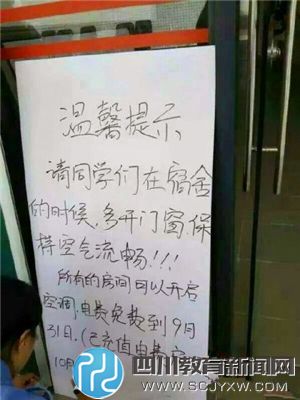 温馨提示
请同学们在宿舍
的时候,多开门窗,保
持空气流畅!!!
所有的房间可以开启
空调,电费免费到9月
31日,(已充值电费
10月
四川教育新闻网
WWW.SCJYXW.COM